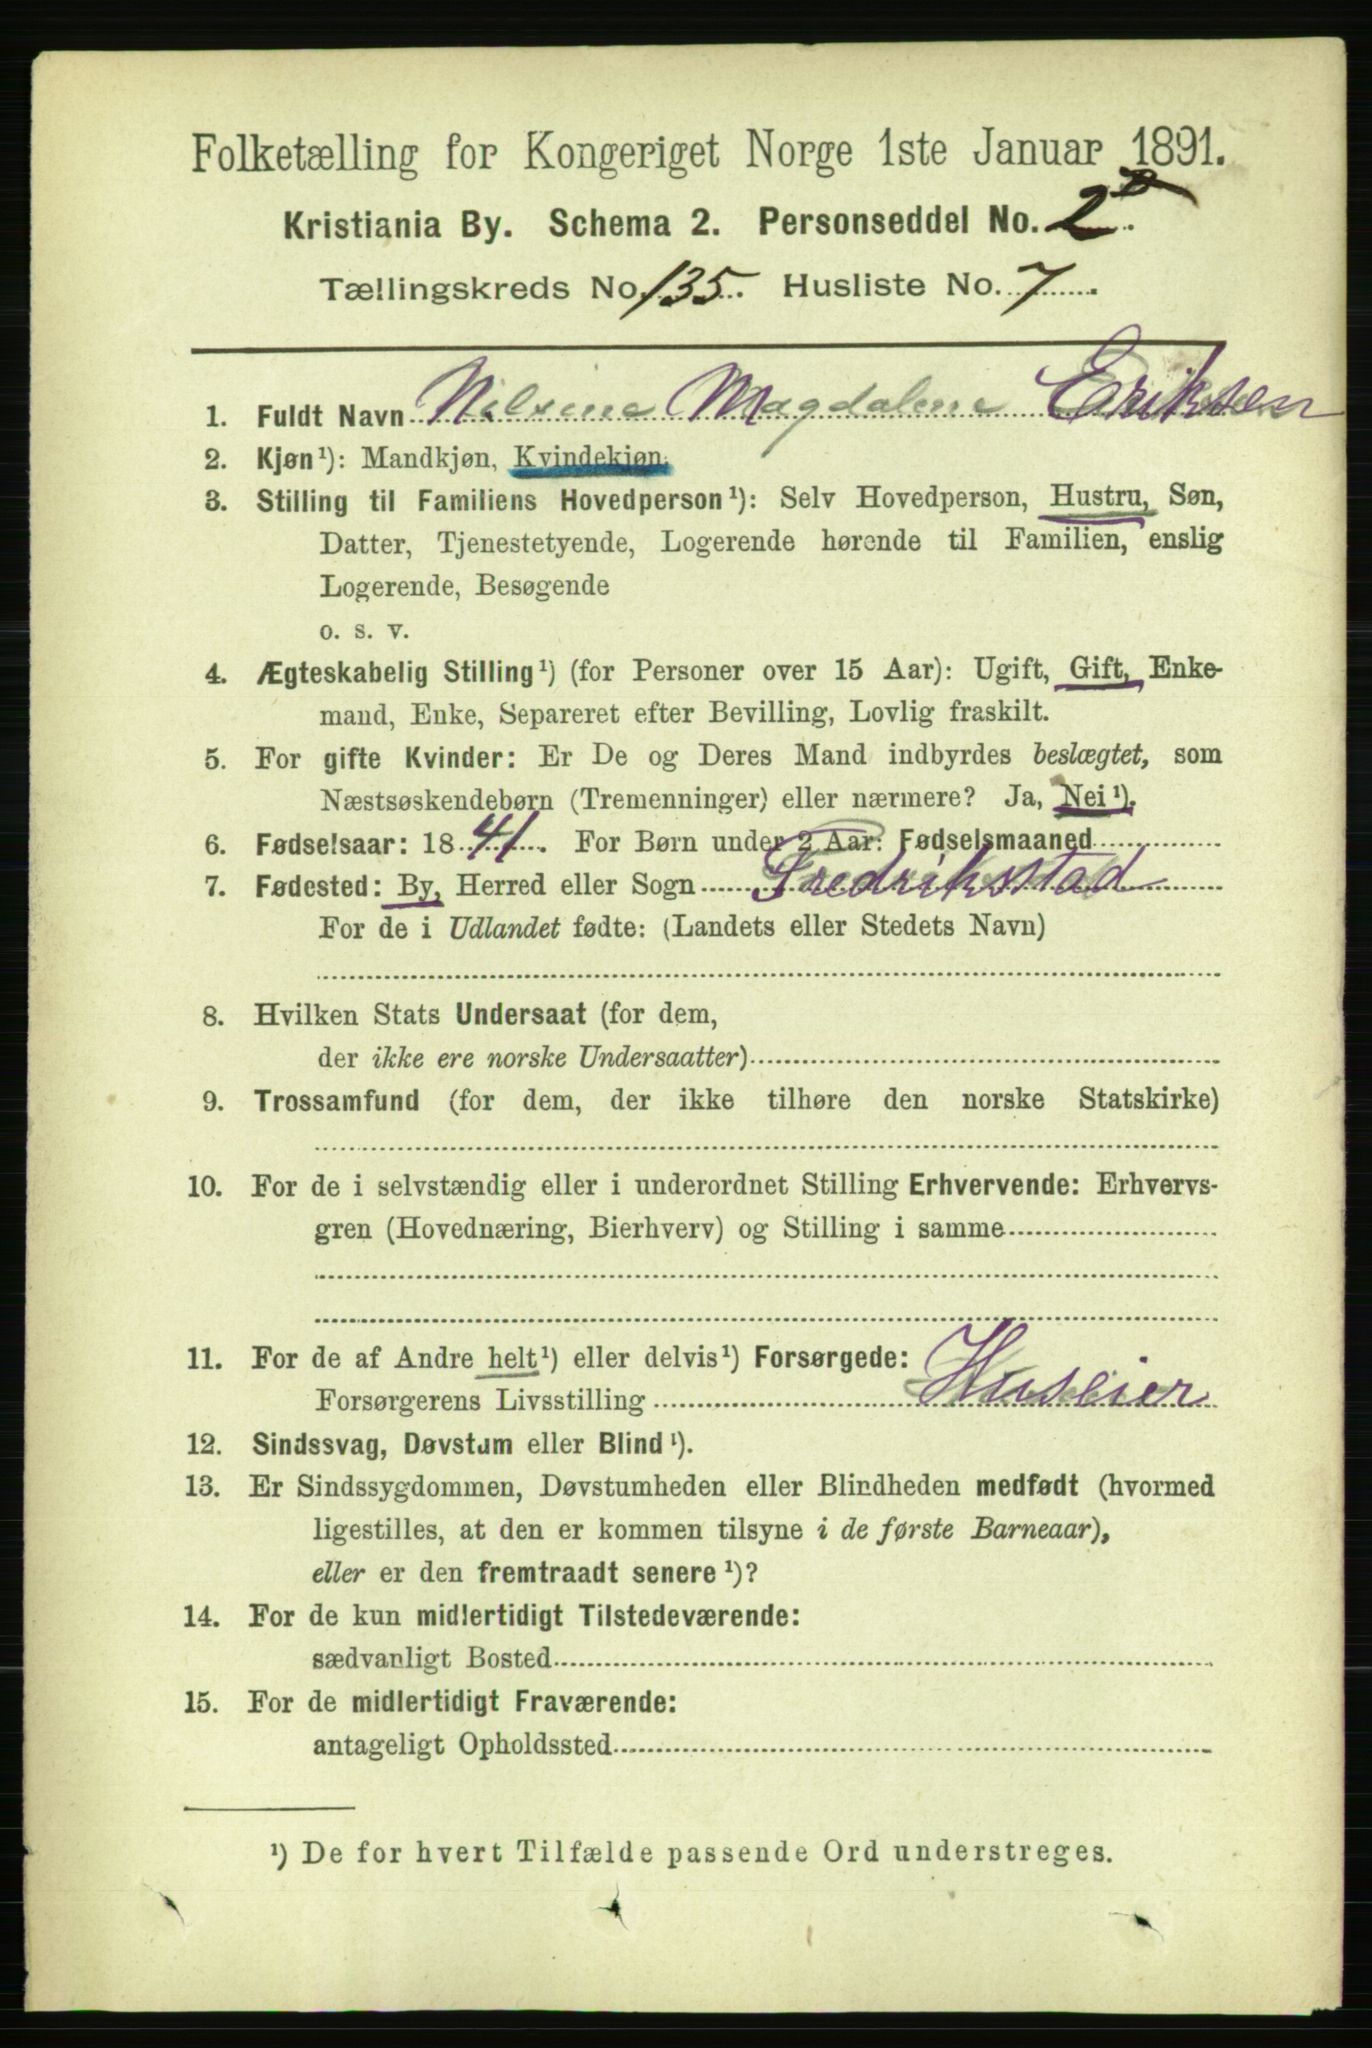 Folketælling for Kongeriget Norge 1ste Januar 1891.
Kristiania By. Schema 2. Personseddel No. 2
Tællingskreds No. 135. Husliste No. 7.
1. Fuldt Navn Nilsine Magdalene Eriksen
2. Kjøn¹): Mandkjøn, Kvindekjøn.
3. Stilling til Familiens Hovedperson¹): Selv Hovedperson, Hustru, Søn,
Datter, Tjenestetyende, Logerende hørende til Familien, enslig
Logerende, Besøgende
o. s. v.
4. Ægteskabelig Stilling¹) (for Personer over 15 Aar): Ugift, Gift, Enke-
mand, Enke, Separeret efter Bevilling, Lovlig fraskilt.
5. For gifte Kvinder: Er De og Deres Mand indbyrdes beslægtet, som
Næstsøskendebørn (Tremenninger) eller nærmere? Ja, Nei¹).
6. Fødselsaar: 1841. For Børn under 2 Aar: Fødselsmaaned
7. Fødested: By, Herred eller Sogn Fredrikstad
For de i Udlandet fødte: (Landets eller Stedets Navn)
8. Hvilken Stats Undersaat (for dem,
der ikke ere norske Undersaatter)
9. Trossamfund (for dem, der ikke tilhøre den norske Statskirke)
10. For de i selvstændig eller i underordnet Stilling Erhvervende: Erhvervs-
gren (Hovednæring, Bierhverv) og Stilling i samme
11. For de af Andre helt¹) eller delvis¹) Forsørgede:
Forsørgerens Livsstilling Huseier
12. Sindssvag, Døvstum eller Blind¹).
13. Er Sindssygdommen, Døvstumheden eller Blindheden medfødt (hvormed
ligestilles, at den er kommen tilsyne i de første Barneaar),
eller er den fremtraadt senere¹)?
14. For de kun midlertidigt Tilstedeværende:
sædvanligt Bosted
15. For de midlertidigt Fraværende:
antageligt Opholdssted
¹) De for hvert Tilfælde passende Ord understreges.